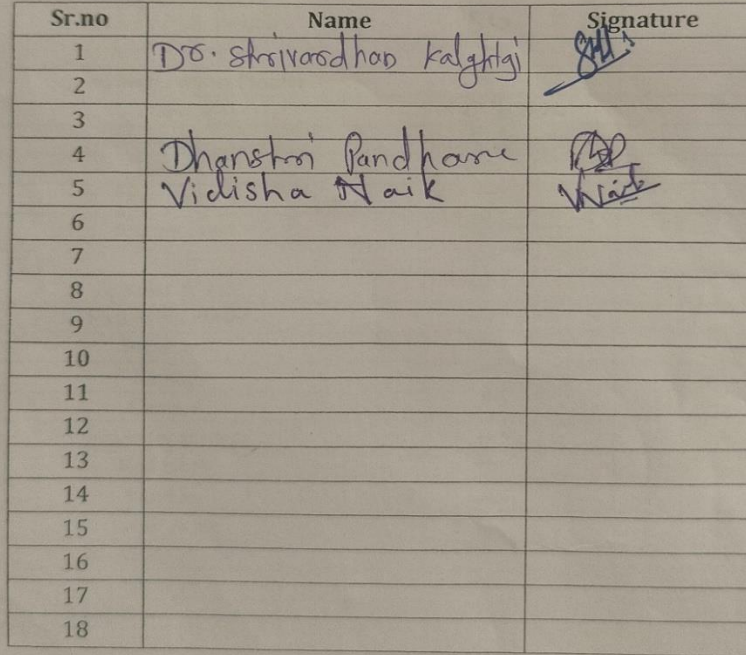 Sr.no Name Signature
1 Dr. Shrivardhan Kalghtgi
2
3
4 Dhanshri Pandhare
5 Vidisha Naik VNaik
6
7
8
9
10
11
12
13
14
15
16
17
18